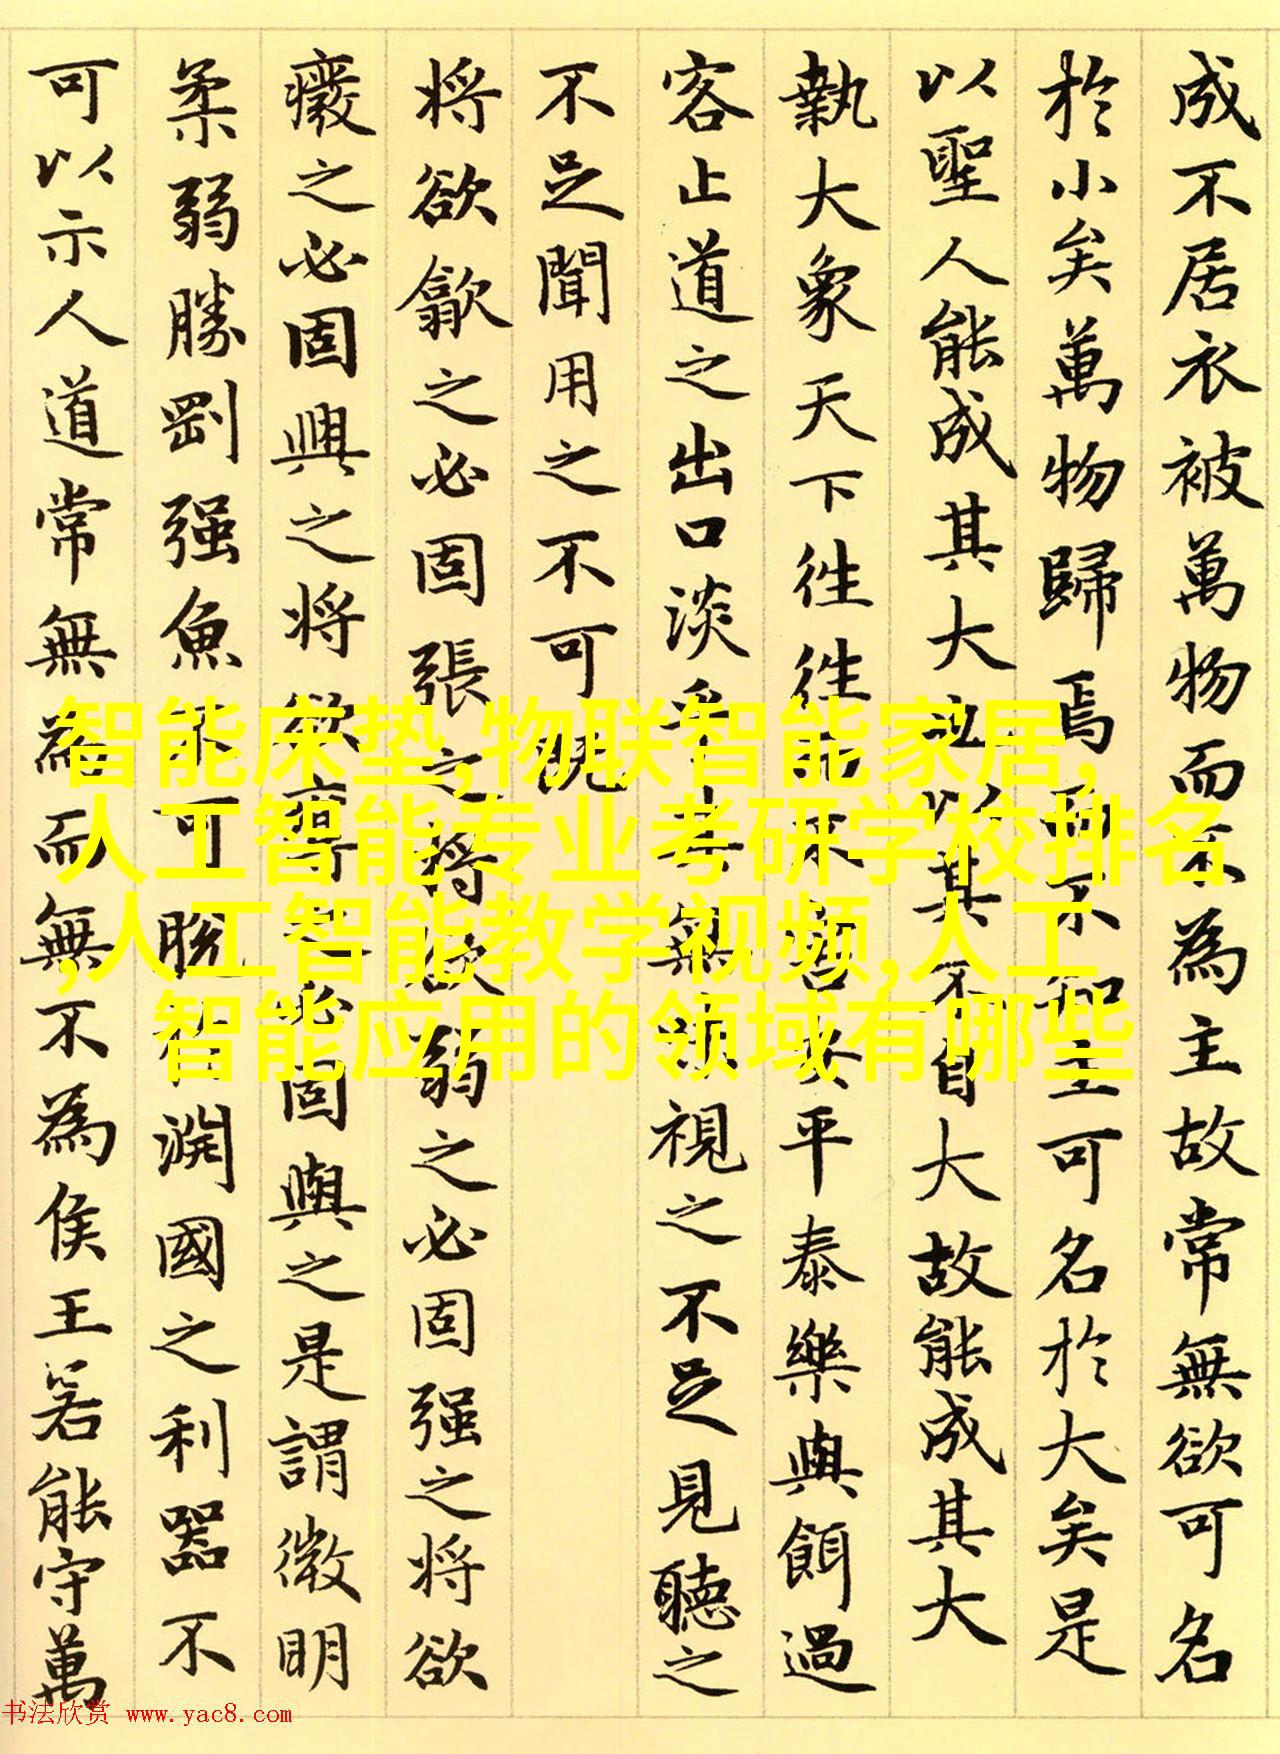 成不居衣被萬物而不為主故常無欲可名
於小矣萬物歸焉而不知主可名於大矣是
以聖人能成其大也以其不自大故能成其大
執大象天下往往而不害安平泰樂與餌過
客止道之出口淡乎其無味視之不足見聽之
不足聞用之不可既
将欲歙之必固張之将欲弱之必固强之将欲
廢之必固興之将欲奪之必固與之是謂微明
柔弱勝剛强魚不可脫於淵國之利器不
可以示人道常無為而無不為侯王若能守萬
智能床垫,物联智能家居,
人工智能专业考研学校排名
,人工智能教学视频,人工
智能应用的领域有哪些
书法欣赏 www.yac8.com